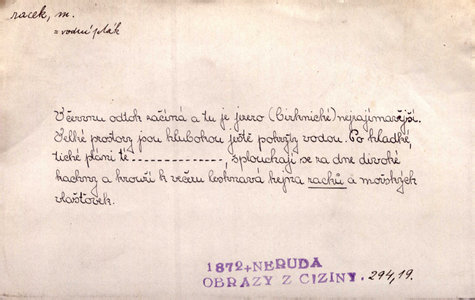 racek, m.
= vodní pták
V červnu odtok začíná a tu je jezero (Cirknické) nejzajímavější.
Velké prostory jsou hlubokou ještě pokryty vodou. Po hladké,
tiché pláni té ------------, splouchají se za dne divoké
kachny a krouží k večeru lesknavá hejna racků a mořských
vlaštovek.
1872 + NERUDA
OBRAZY Z CIZINY. 294,19.